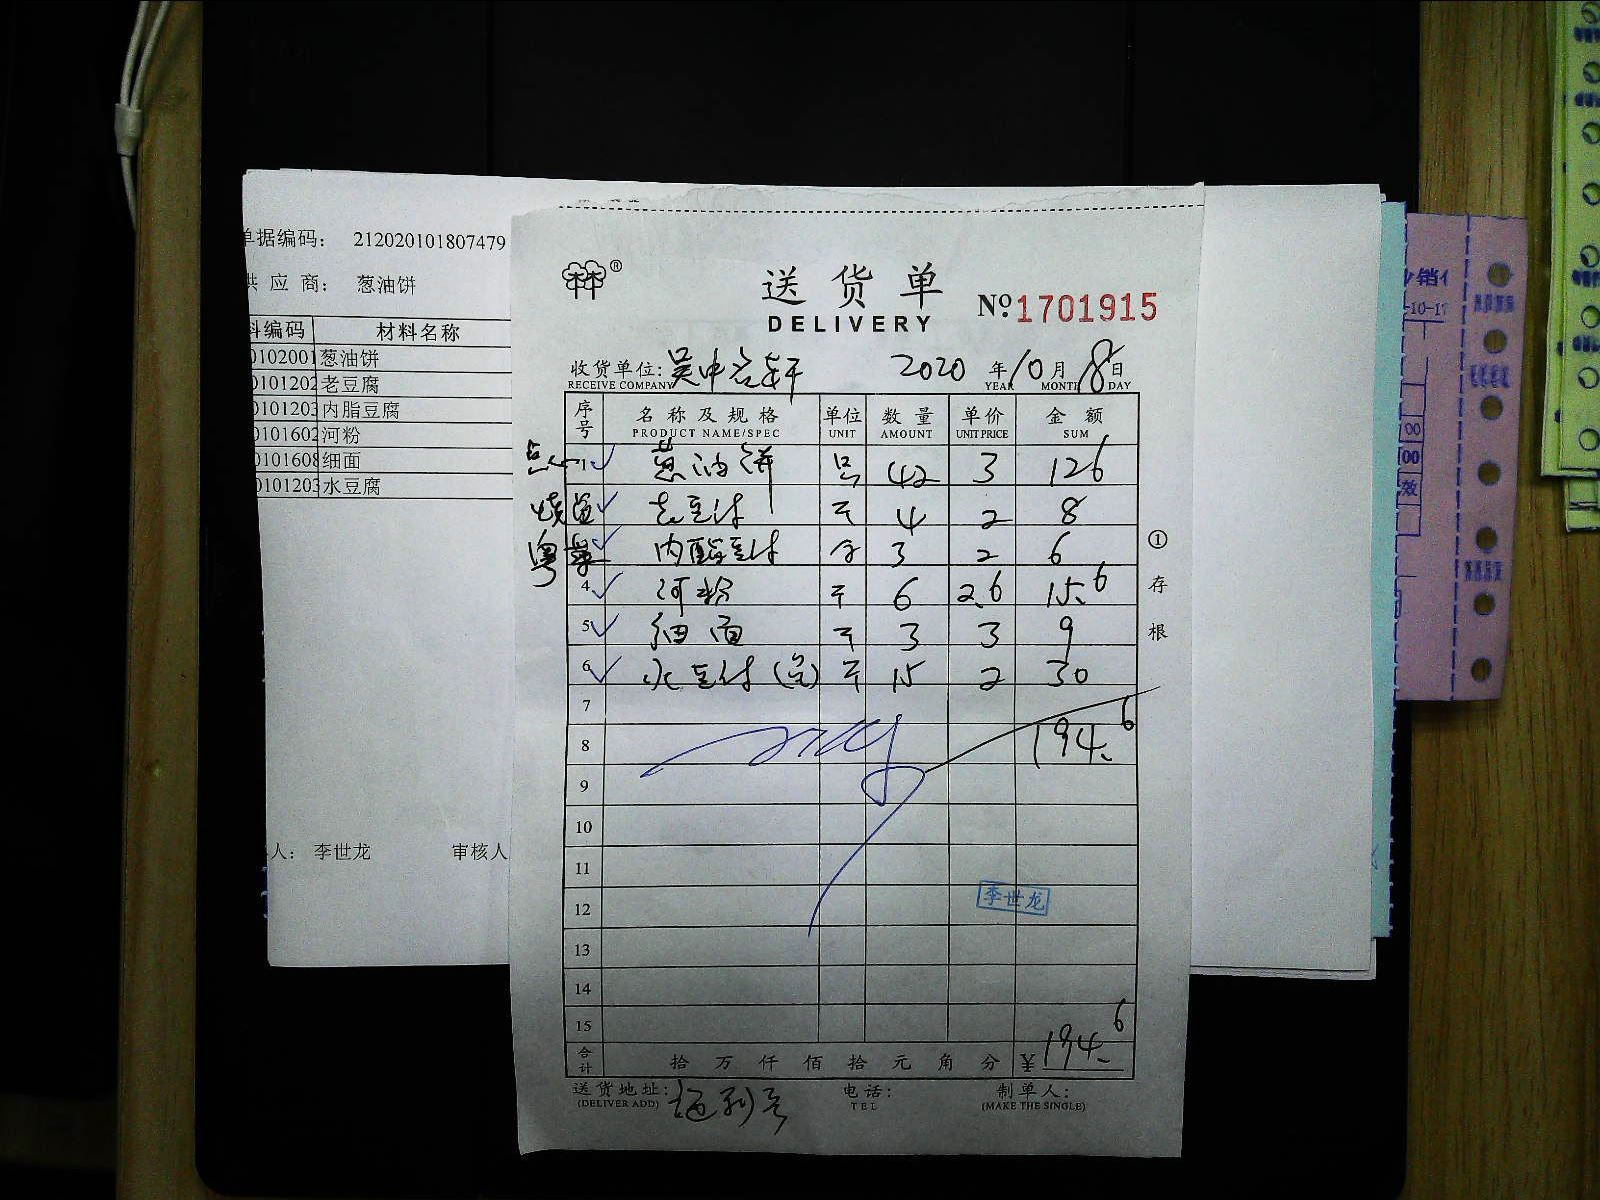 单据编码： 212020101807479
供 应 商： 葱油饼
料编码 材料名称
0102001 葱油饼
0101202 老豆腐
0101203 内脂豆腐
0101602 河粉
0101608 细面
0101203 水豆腐
人： 李世龙 审核人
送货单
DELIVERY
No 1701915
收货单位: 吴中 轩 2020 年 10 月 18 日
RECEIVE COMPANY YEAR MONTH DAY
序号 名称及规格 单位 数量 单价 金额
PRODUCT NAME/SPEC UNIT AMOUNT UNIT PRICE SUM
点心 1 葱油饼 42 3 126
老豆付 斤 4 2 8
粤菜 内酯豆付 合 3 2 6
4 河粉 斤 6 2.6 15.6
5 细面 斤 3 3 9
6 水豆付 斤 15 2 30
7
8 194.6
9
10
11
12 李世龙
13
14
15
合计 拾 万 仟 佰 拾 元 角 分 ¥ 194.6
送货地址: 电话: 制单人:
(DELIVER ADD) TEL (MAKE THE SINGLE)
①存根
销
-10-17
00
00
效